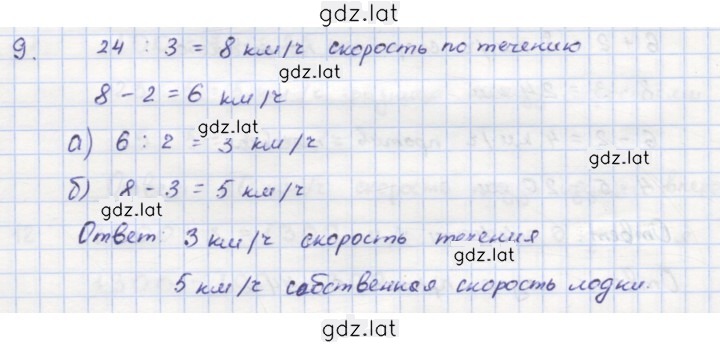 gdz.lat
9. 24 : 3 = 8 км/ч скорость по течению
gdz.lat
8 - 2 = 6 км/ч
gdz.lat
а) 6 : 2 = 3 км/ч
gdz.lat
б) 8 - 3 = 5 км/ч
gdz.lat
Ответ: 3 км/ч скорость течения
gdz.lat
5 км/ч собственная скорость лодки.
gdz.lat